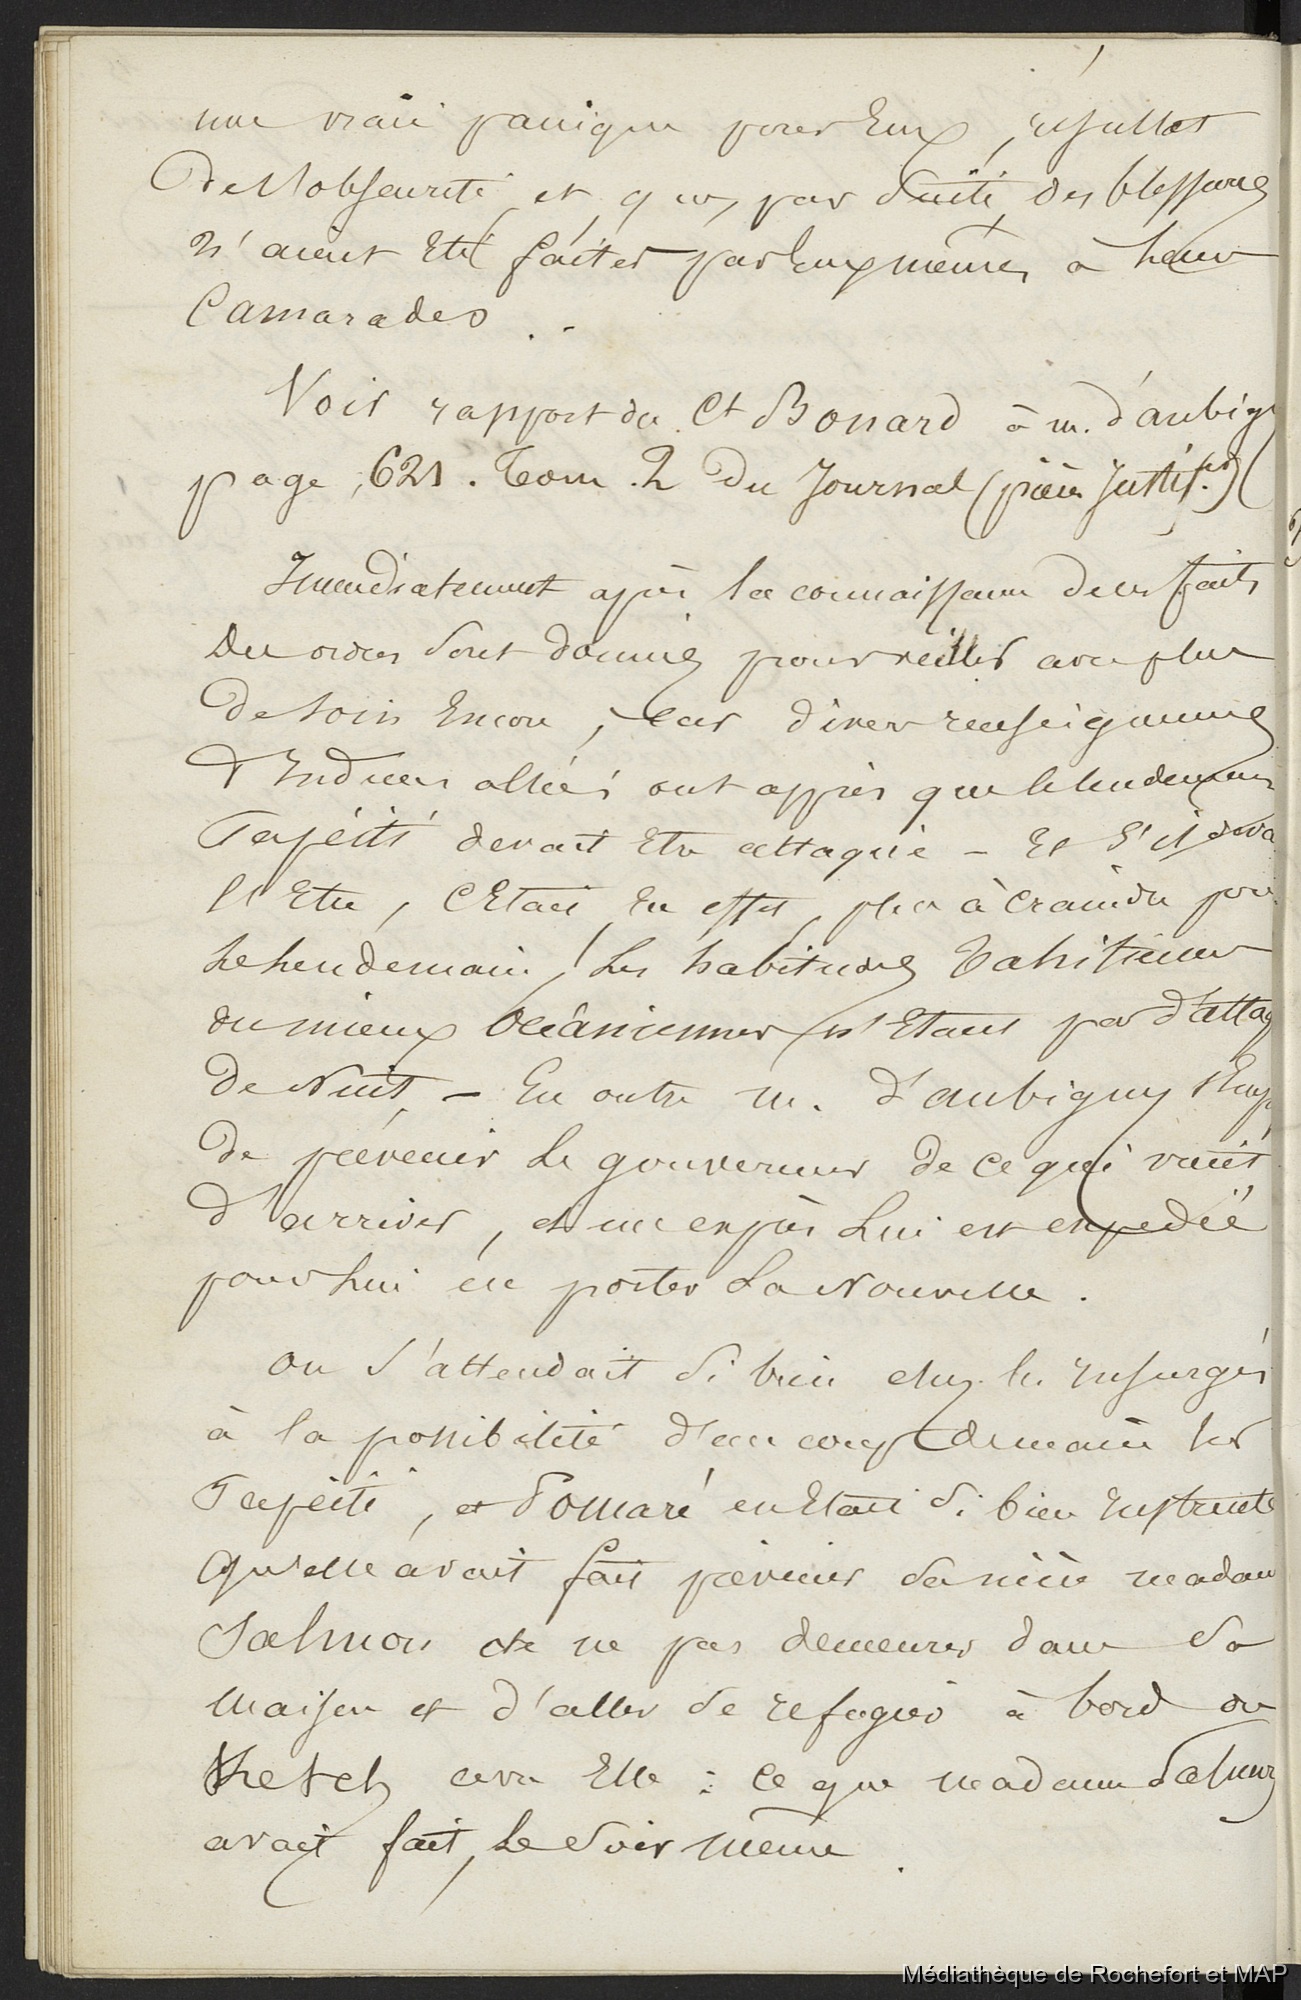 une vraie panique pour Eux, resultat
De l'obscurité et que, par suite, des blessures
n'aient Eté faites par Eux memes à Leur
Camarades.
Voir rapport du Ct Bonard à m. d'aubigny
page 621. Tom. 2 Du Journal (pièces Justif.ves)
Immediatement après la connaissance de ces faits
Des ordres sont donnés pour veiller avec plus
De soin Encore, car divers renseignemens
D'Indiens alliés ont appris que le lendemain
Papéiti devait Etre attaqué - Et s'il devait
l'Etre, C'Etait En effet plus à Craindre pour
Le Lendemain, Les habitudes Tahitiennes
ou mieux Océaniennes n'Etant pas d'attaq
De Nuit, - En outre m. d'aubigny s'Emp
de prévenir Le gouverneur de ce qui venait
d'arriver, et un exprès Lui est expedié
pour Lui en porter La Nouvelle.
on s'attendait si bien chez les Insurgés
à la possibilité d'un coup de main sur
Papéiti, et Pomaré en Etait si bien Instruite
qu'elle avait fait prévenir sa nièce madam
Salmon de ne pas demeurer dans sa
Maison et d'aller se refugier à bord du
Ketch avec Elle : ce que madame Salmon
avait fait, Le Soir même.
Médiathèque de Rochefort et MAP